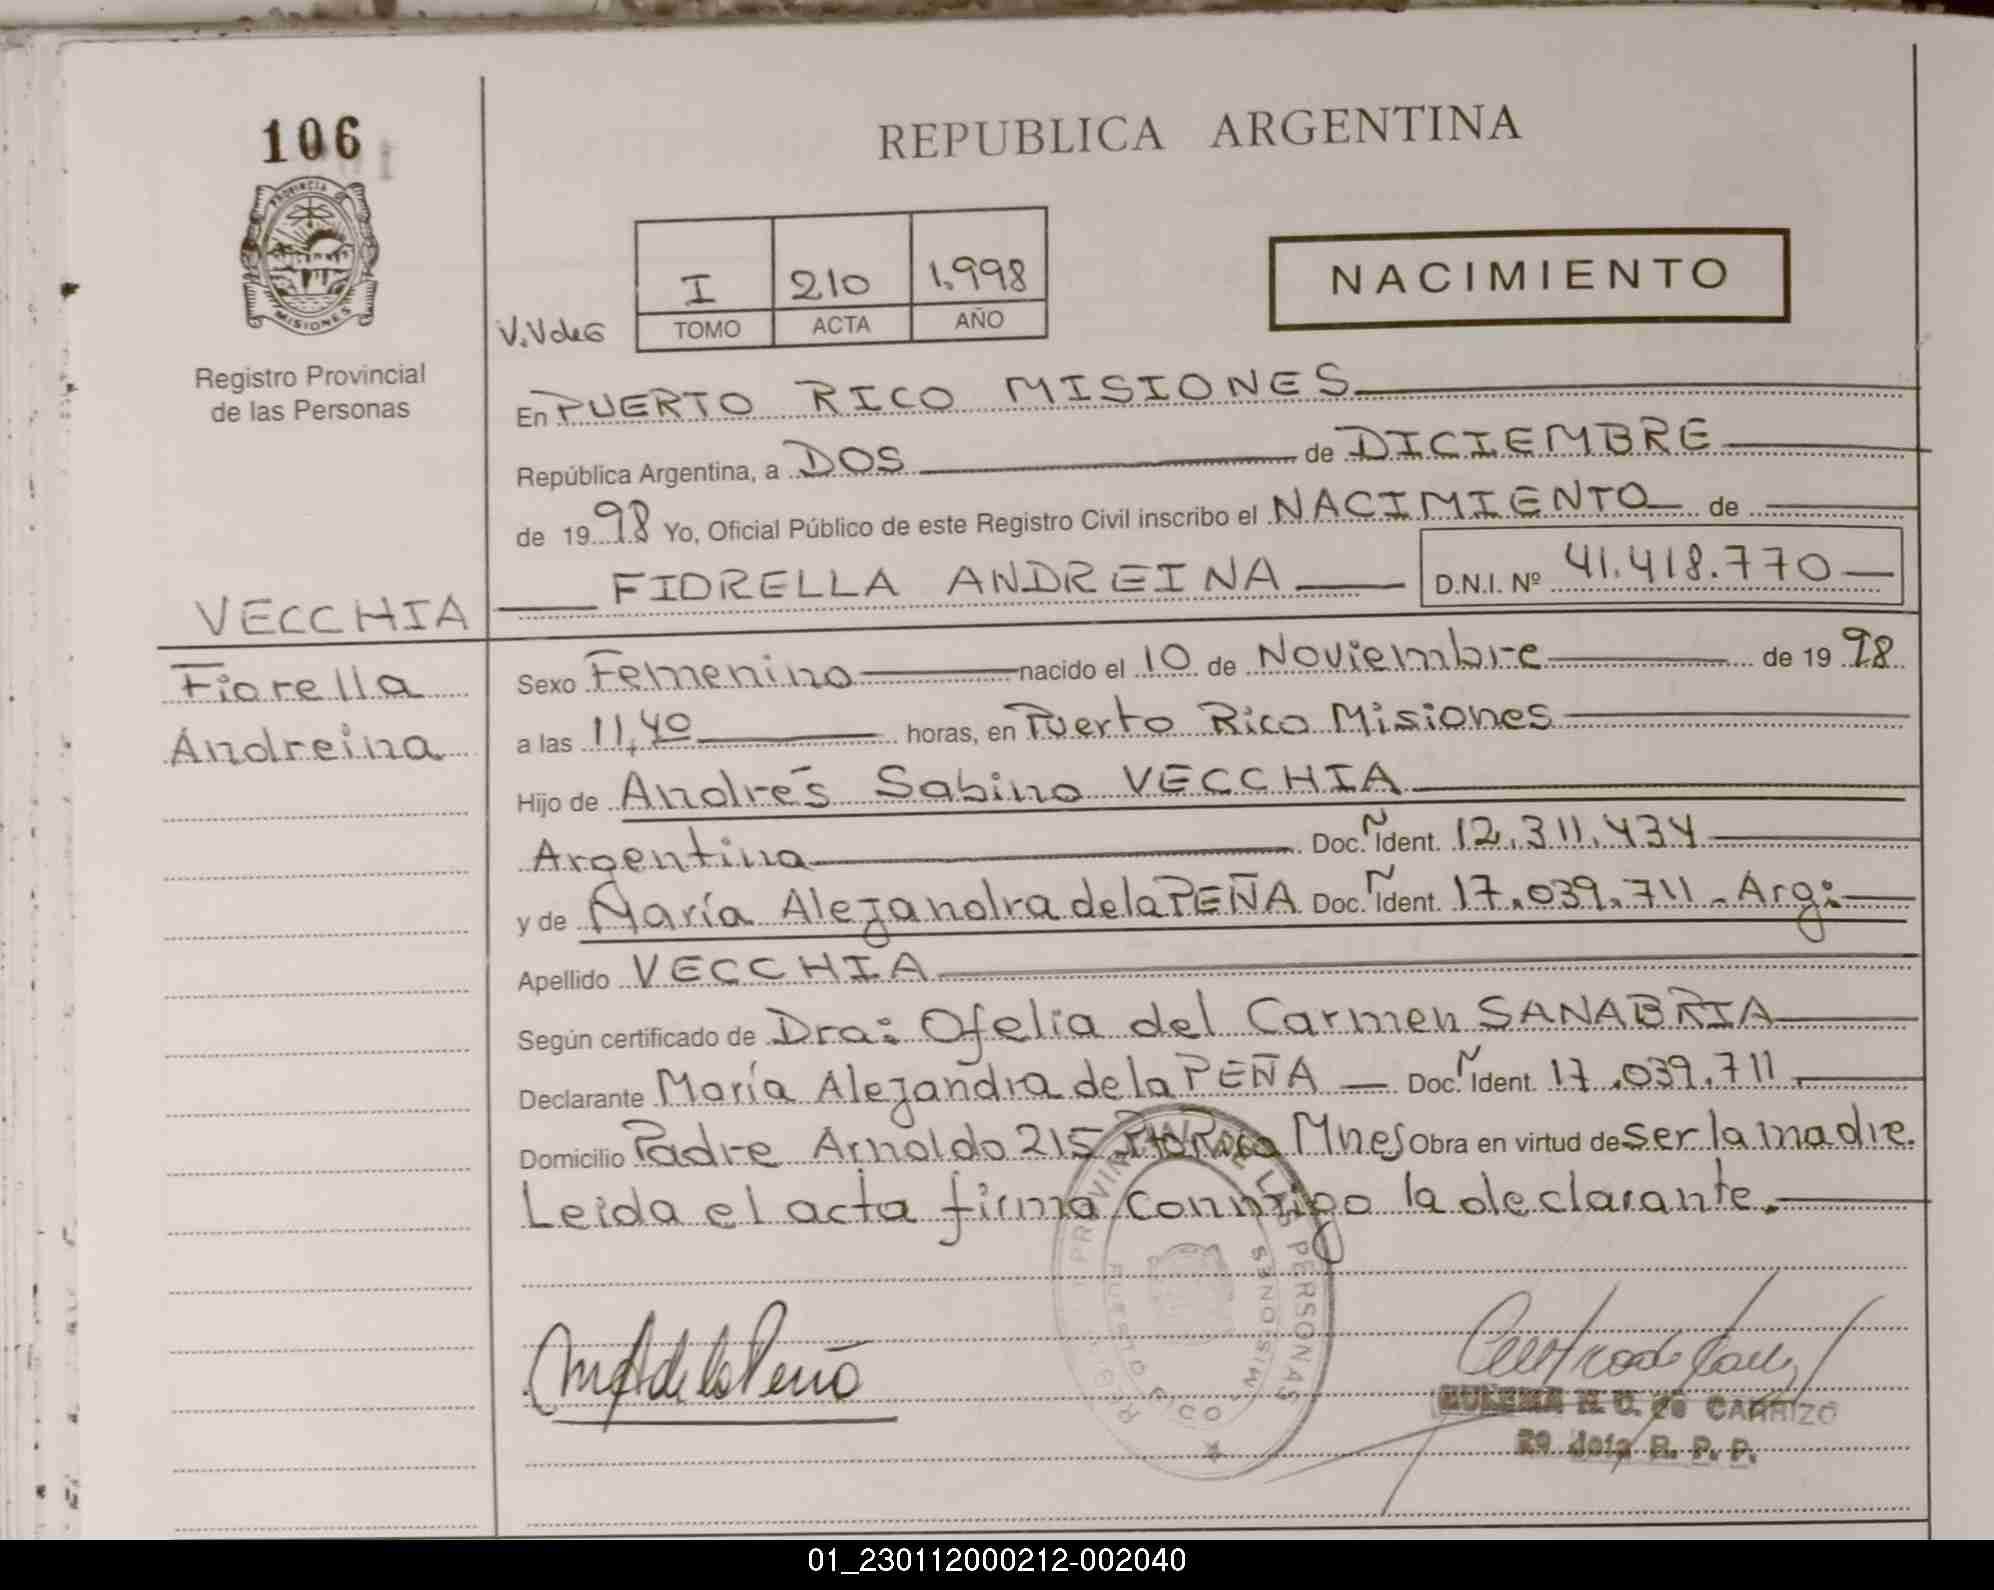 106
PROVINCIA DE
MISIONES
Registro Provincial
de las Personas
REPUBLICA ARGENTINA
I 210 1.998
TOMO ACTA AÑO
NACIMIENTO
En PUERTO RICO MISIONES
República Argentina, a DOS de DICIEMBRE
de 1998 Yo, Oficial Público de este Registro Civil inscribo el NACIMIENTO de
FIORELLA ANDREINA D.N.I. Nº 41.418.770
VECCHIA
Fiorella
Andreina
Sexo Femenino nacido el 10 de Noviembre de 1998
a las 11,40 horas, en Puerto Rico Misiones
Hijo de Andrés Sabino VECCHIA
Argentina Doc. Ident. 12.311.434
y de María Alejandra de la PEÑA Doc. Ident. 17.039.711 - Arg:
Apellido VECCHIA
Según certificado de Dra: Ofelia del Carmen SANABRIA
Declarante María Alejandra de la PEÑA Doc. Ident. 17.039.711
Domicilio Padre Arnoldo 215 Pto Rico Mnes Obra en virtud de ser la madre.
Leida el acta firma conmigo la declarante.
PROVINCIAL DE LAS PERSONAS
PUERTO RICO MISIONES
de la Peña
H. C. de CARRIZO
R. P. P.
01_230112000212-002040